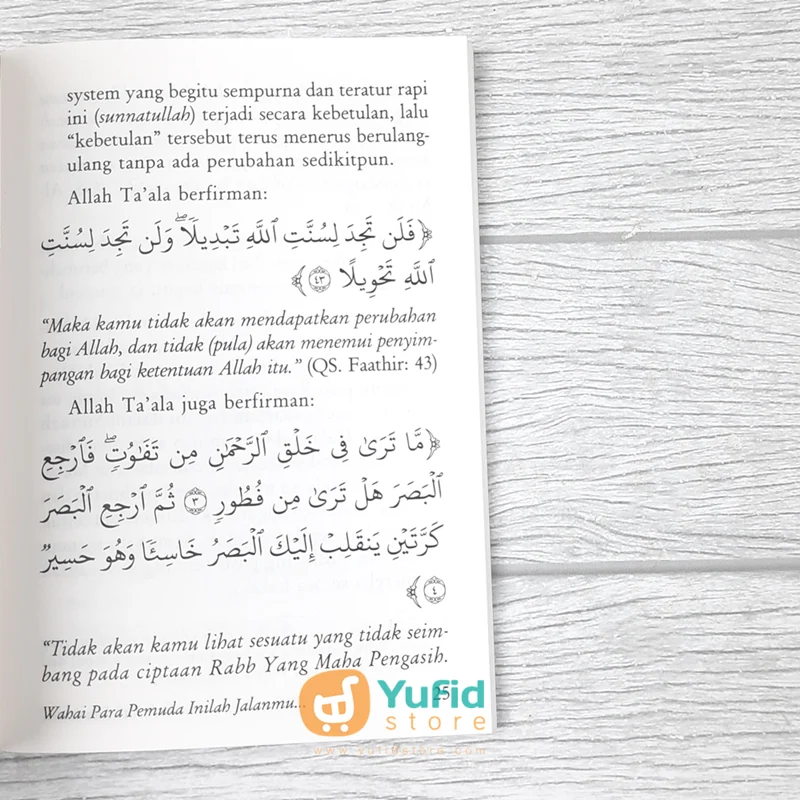 system yang begitu sempurna dan teratur rapi
ini (sunnatullah) terjadi secara kebetulan, lalu
“kebetulan” tersebut terus menerus berulang-
ulang tanpa ada perubahan sedikitpun.
Allah Ta’ala berfirman:
﴿فَلَن تَجِدَ لِسُنَّتِ ٱللَّهِ تَبۡدِيلٗاۖ وَلَن تَجِدَ لِسُنَّتِ
ٱللَّهِ تَحۡوِيلًا ٤٣﴾
“Maka kamu tidak akan mendapatkan perubahan
bagi Allah, dan tidak (pula) akan menemui penyim-
pangan bagi ketentuan Allah itu.” (QS. Faathir: 43)
Allah Ta’ala juga berfirman:
﴿مَّا تَرَىٰ فِي خَلۡقِ ٱلرَّحۡمَٰنِ مِن تَفَٰوُتٖۖ فَٱرۡجِعِ
ٱلۡبَصَرَ هَلۡ تَرَىٰ مِن فُطُورٖ ٣ ثُمَّ ٱرۡجِعِ ٱلۡبَصَرَ
كَرَّتَيۡنِ يَنقَلِبۡ إِلَيۡكَ ٱلۡبَصَرُ خَاسِئٗا وَهُوَ حَسِيرٞ
٤﴾
“Tidak akan kamu lihat sesuatu yang tidak seim-
bang pada ciptaan Rabb Yang Maha Pengasih.
Wahai Para Pemuda Inilah Jalanmu... 25
Yufid
store
www.yufidstore.com